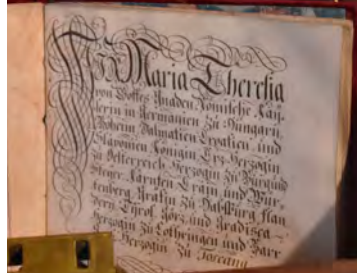 Wir Maria Theresia
von Gottes Gnaden Römische Kay-
serin in Germanien zu Hungarn
Böheim Dalmatien Croatien und
Slavonien Königin Erz-Herzogin
zu Österreich Herzogin zu Burgund
Steyer Kärnten Crain und Wür-
tenberg Gräfin zu Habsburg Flan
dern Tyrol Görz und Gradisca
Herzogin zu Lothringen und Barr
Herzogin zu Toscana